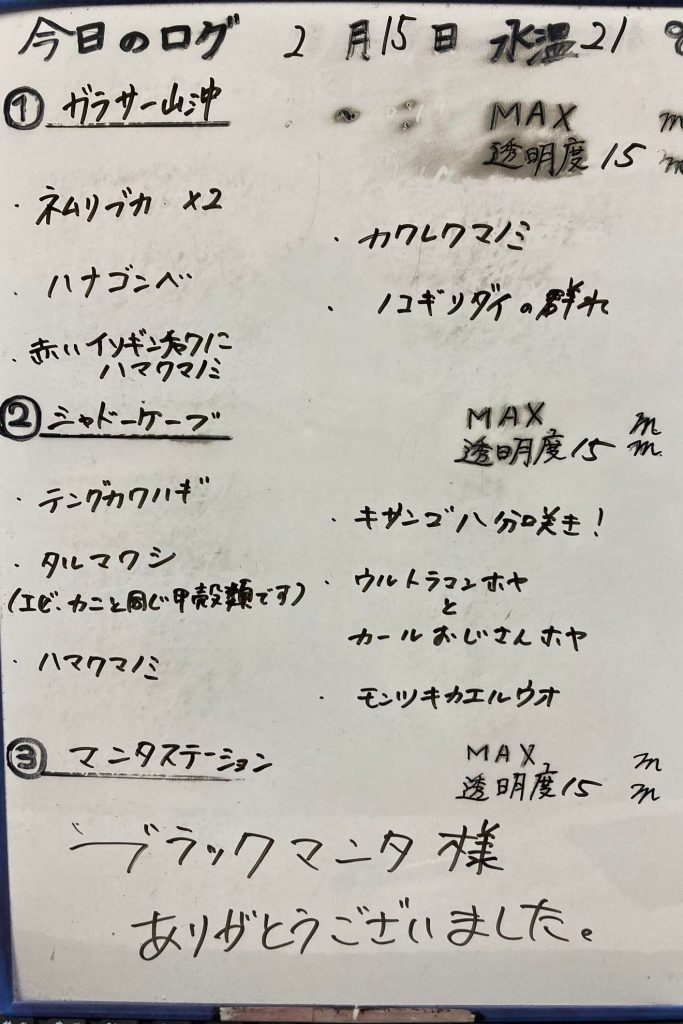 今日のログ 2月15日 水温21℃
① ガラサー山沖
MAX m
透明度15m
・ネムリブカ ×2
・カクレクマノミ
・ハナゴンベ
・ノコギリダイの群れ
・赤いイソギンチャクに
ハマクマノミ
② シャドーケーブ
MAX m
透明度15m
・テングカワハギ
・キサンゴ八分咲き!
・タルマワシ
(エビ、カニと同じ甲殻類です)
・ウルトラマンホヤ
と
カールおじさんホヤ
・ハマクマノミ
・モンツキカエルウオ
③ マンタステーション
MAX m
透明度15m
ブラックマンタ様
ありがとうございました。